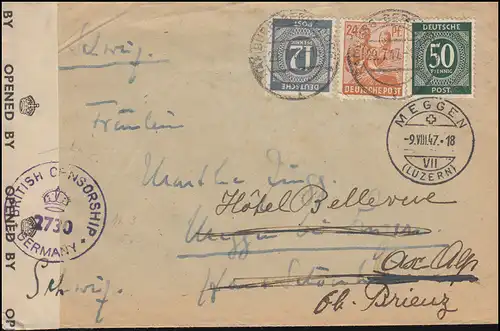 OPENED BY
OPENED BY
OPENED BY
OP
BRITISH CENSORSHIP
2730
GERMANY
12
DEUTSCHE
PFENNIG
POST
24
DEUTSCHE POST
DEUTSCHE
50
PFENNIG
POST
MEGGEN
-9.VIII.47.-18
VII
(LUZERN)
Schweiz
Fräulein
Hôtel Bellevue
Meggen
Axalp
Schweiz
b. Brienz